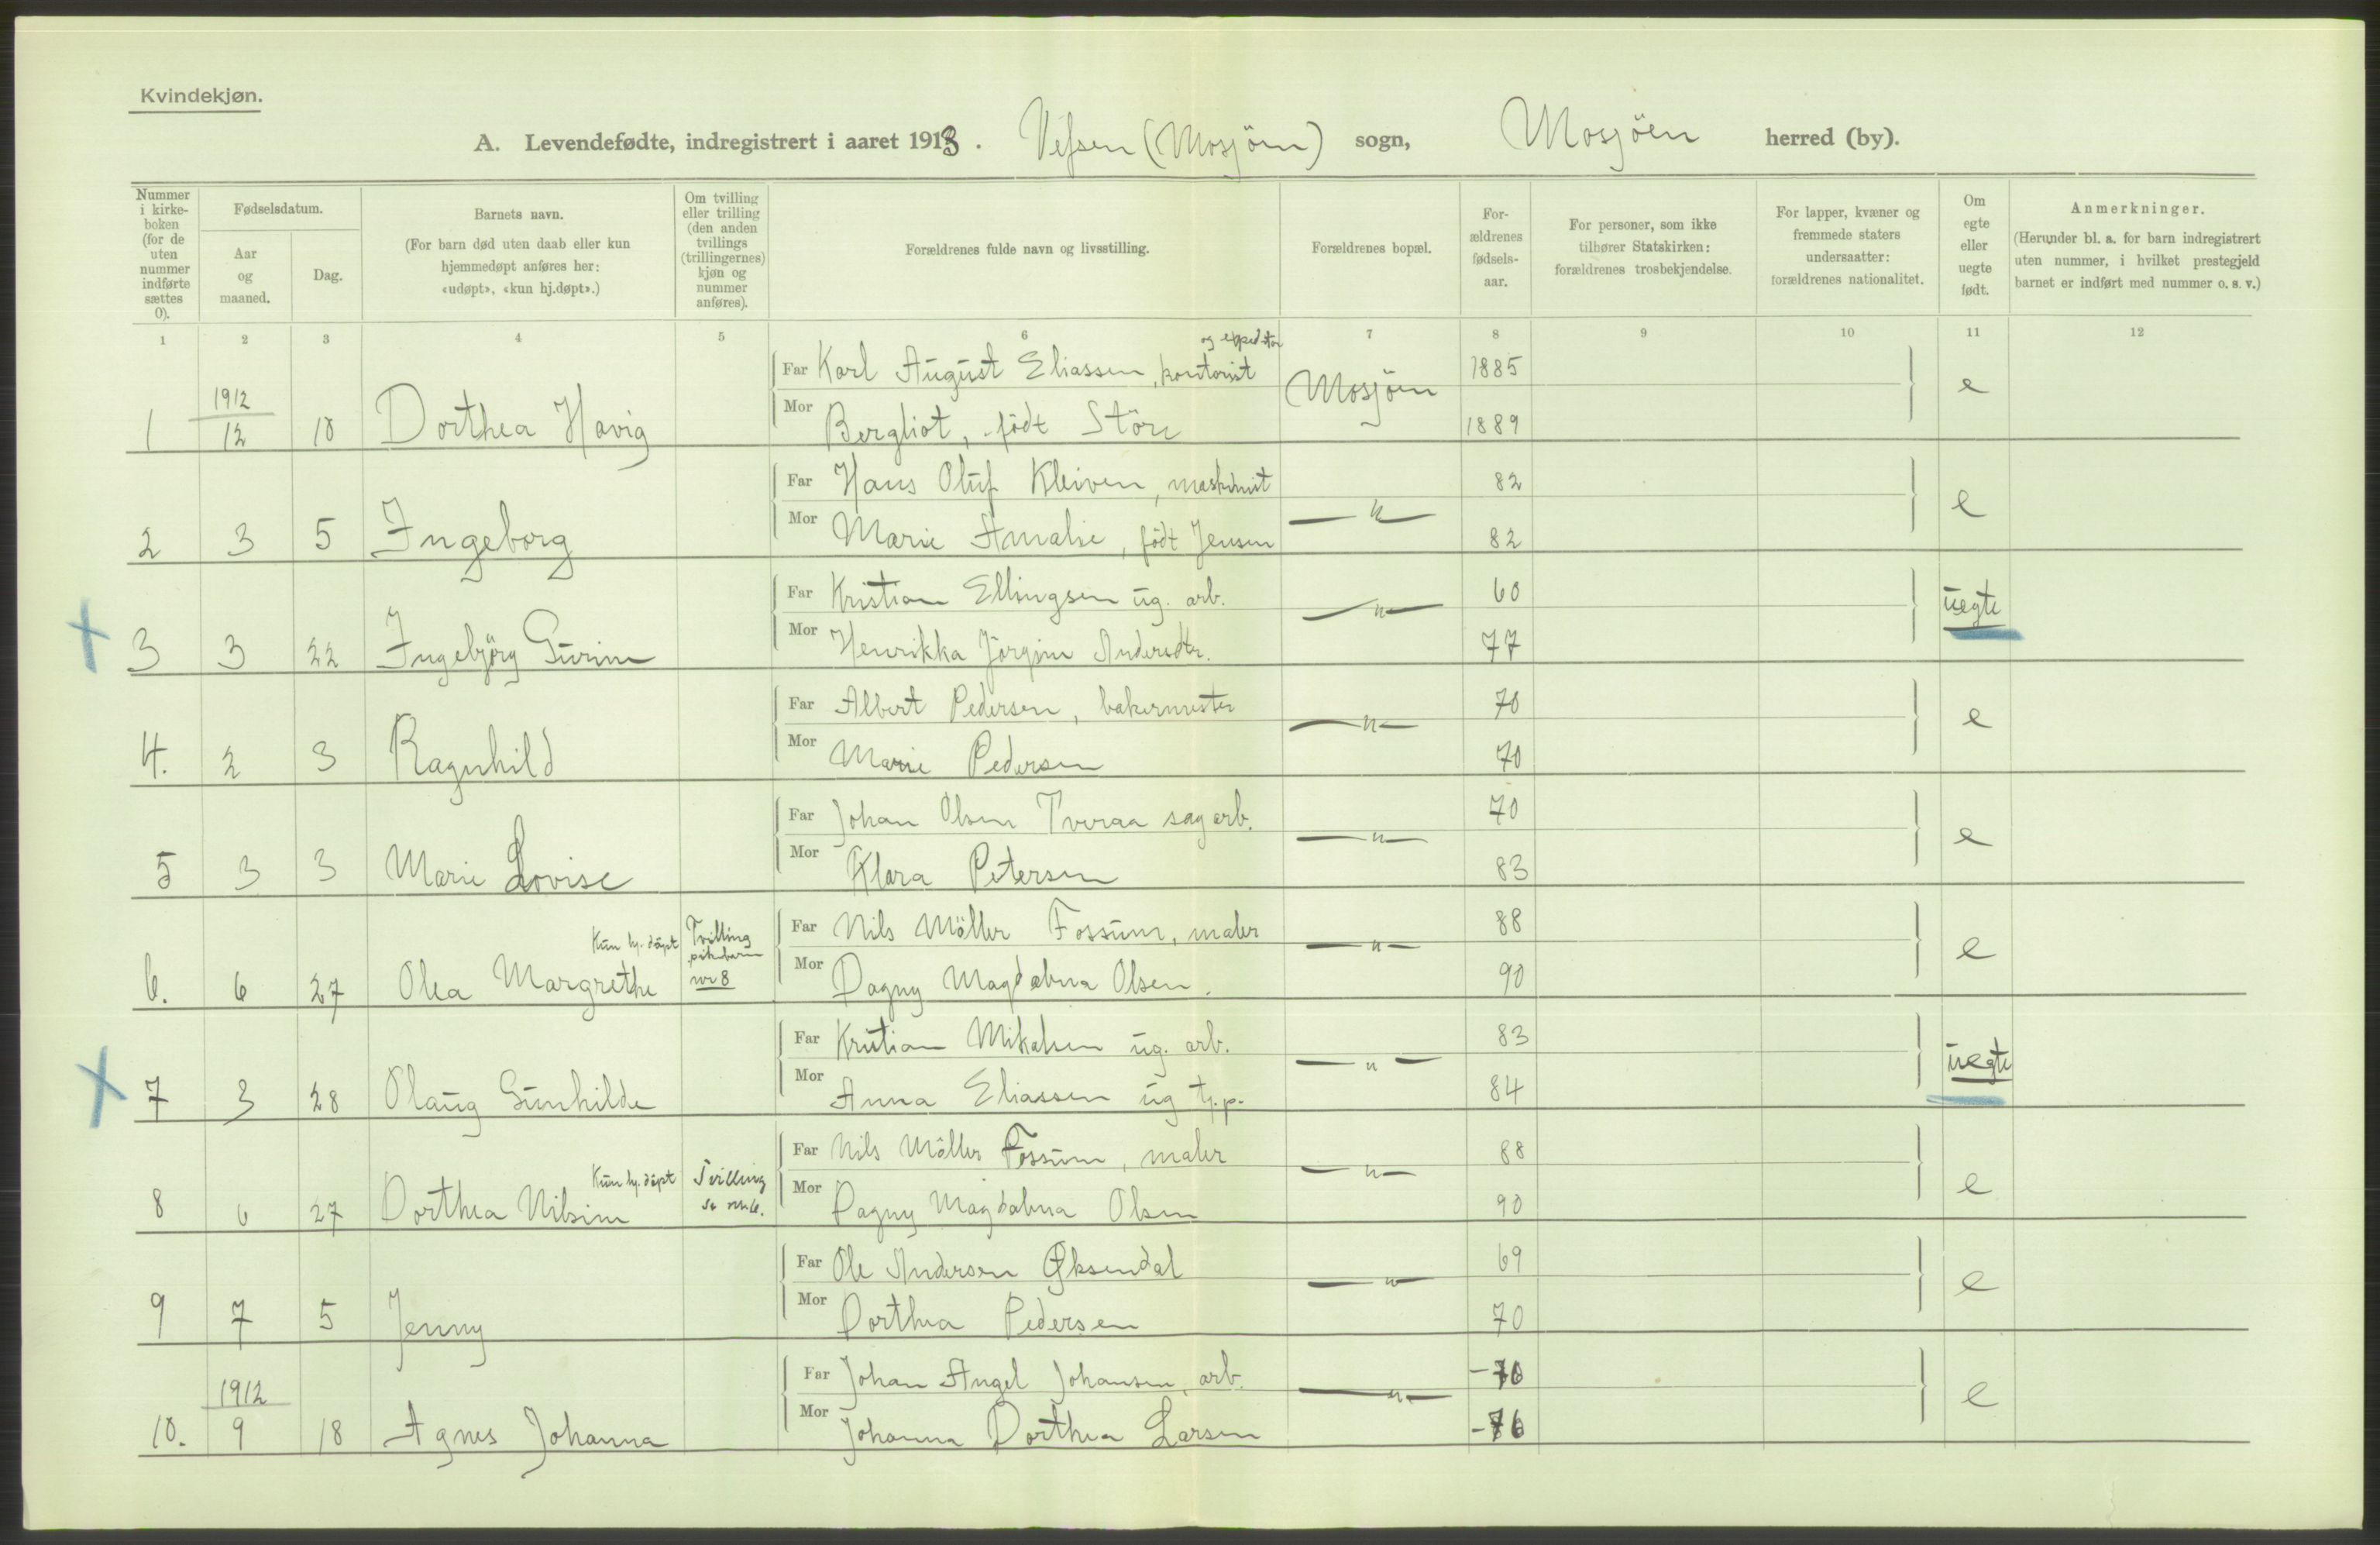 Kvindekjøn.
A. Levendefødte, indregistrert i aaret 1913. Vefsen (Mosjöen) sogn, Mosjöen herred (by).
Nummer i kirkeboken (for de uten nummer indførte sættes 0).
Fødselsdatum.
Aar og maaned.
Dag.
Barnets navn.
(For barn død uten daab eller kun hjemmedøpt anføres her: «udøpt», «kun hj.døpt».)
Om tvilling eller trilling (den anden tvillings (trillingernes) kjøn og nummer anføres).
Forældrenes fulde navn og livsstilling.
Forældrenes bopæl.
Forældrenes fødselsaar.
For personer, som ikke tilhører Statskirken: forældrenes trosbekjendelse.
For lapper, kvæner og fremmede staters undersaatter: forældrenes nationalitet.
Om egte eller uegte født.
Anmerkninger.
(Herunder bl. a. for barn indregistrert uten nummer, i hvilket prestegjeld barnet er indført med nummer o. s. v.)
1 2 3 4 5 6 7 8 9 10 11 12
Far Karl August Eliassen, kontorist og expeditör Mosjöen 1885 e
1 1912 12 10 Dorthea Havig Mor Bergliot, född Störe 1889
Far Hans Oluf Kleiven, maskinist — " — 82 e
2 3 5 Ingeborg Mor Marie Amalie, födt Jensen 82
Far Kristian Ellingsen ug. arb. — " — 60 uegte
3 3 22 Ingebjörg Gurine Mor Henrikka Jörgine Andersdtr. 77
Far Albert Pedersen, bakermester — " — 70 e
4. 2 3 Ragnhild Mor Marie Pedersen 70
Far Johan Olsen Tveraa sagarb. — " — 70 e
5 3 3 Marie Lovise Mor Klara Petersen 83
Kun hj. döpt Tvilling pikebarn nr 8 Far Nils Möller Fossum, maler — " — 88 e
6. 6 27 Olea Margrethe Mor Dagny Magdalena Olsen. 90
Far Kristian Mikalsen ug. arb. — " — 83 uegte
7 3 28 Olaug Gunhilde Mor Anna Eliassen ug tj.p. 84
Kun hj. döpt Tvilling se nr 6. Far Nils Möller Fossum, maler — " — 88 e
8 6 27 Dorthea Nilsine Mor Dagny Magdalena Olsen 90
Far Ole Andersen Øksendal — " — 69 e
9 7 5 Jenny Mor Dorthea Pedersen 70
Far Johan Angel Johansen, arb. — " — e
10. 1912 9 18 Agnes Johanna Mor Johanna Dorthea Larsen -76